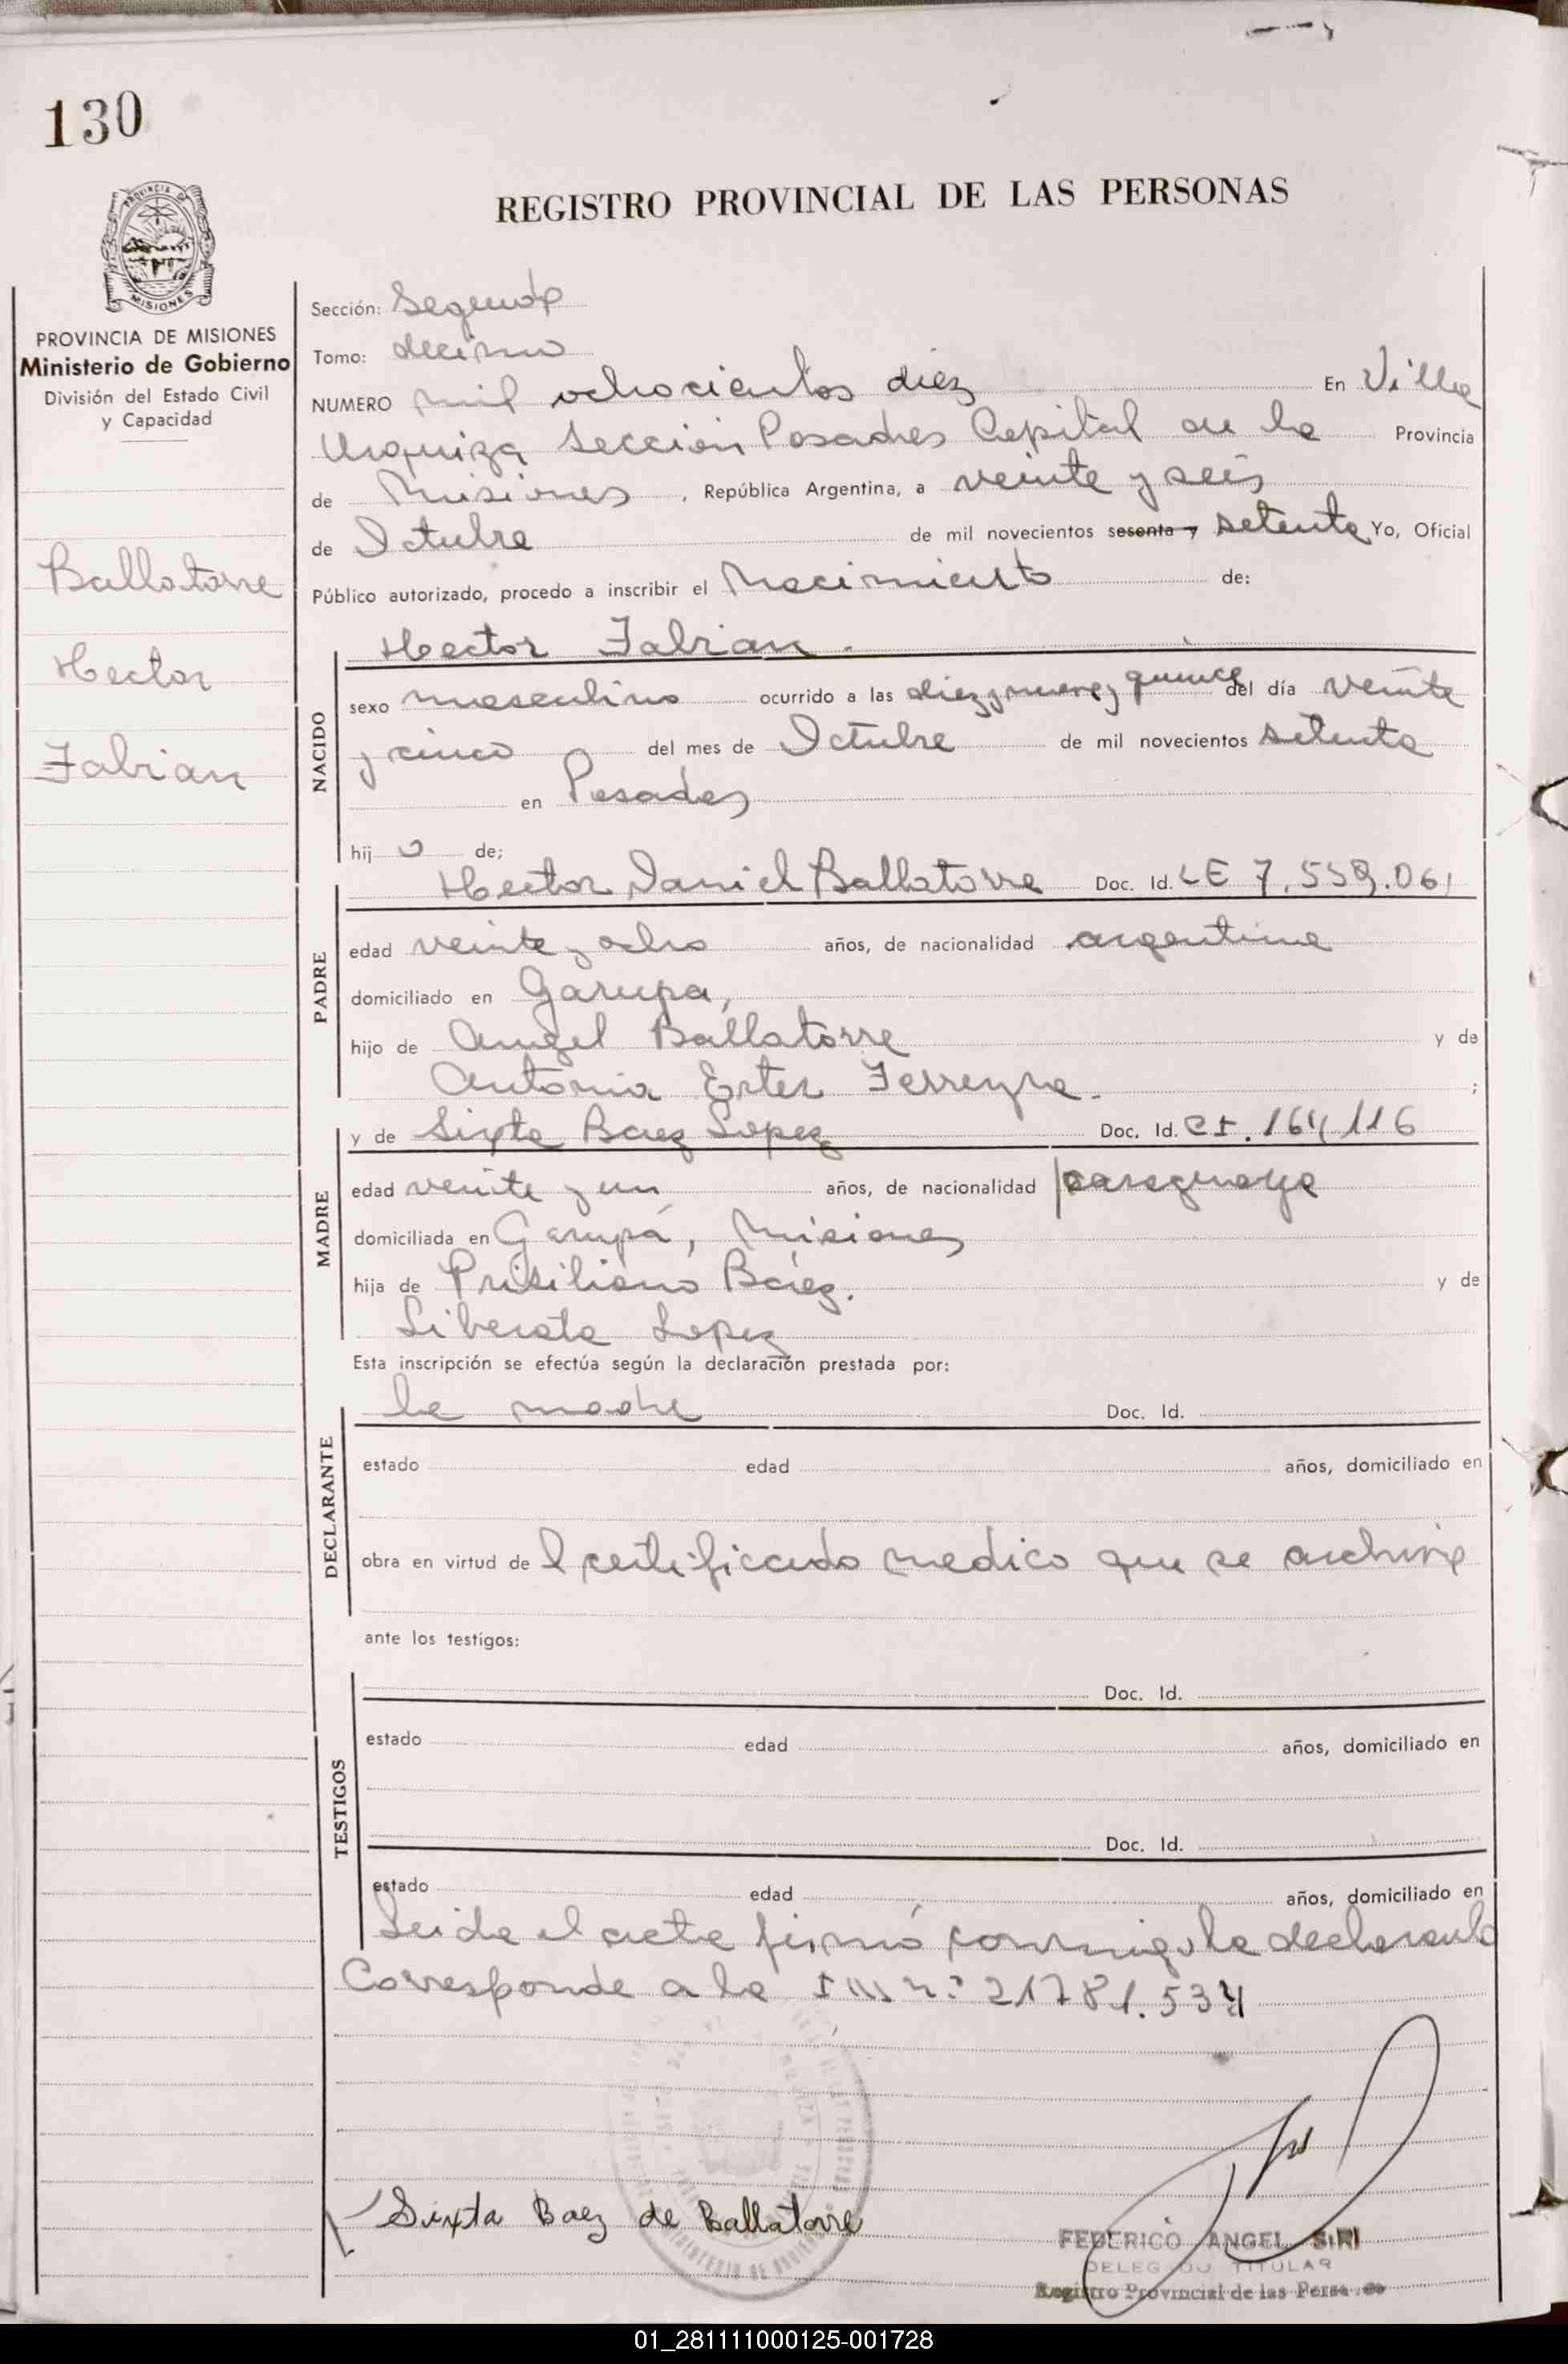 130
REGISTRO PROVINCIAL DE LAS PERSONAS
PROVINCIA DE
MISIONES
PROVINCIA DE MISIONES
Ministerio de Gobierno
División del Estado Civil
y Capacidad
Ballatorre
Hector
Fabian
Sección: Segunda
Tomo: decimo
NUMERO mil ochocientos diez En Villa
Urquiza Sección Posadas Capital de la Provincia
de Misiones, República Argentina, a veinte y seis
de Octubre de mil novecientos sesenta y setenta Yo, Oficial
Público autorizado, procedo a inscribir el Nacimiento de:
NACIDO
Hector Fabian.
sexo masculino ocurrido a las diez y nueve y quince del día veinte
y cinco del mes de Octubre de mil novecientos setenta
en Posadas
hijo de;
PADRE
Hector Daniel Ballatorre Doc. Id. LE 7.559.061
edad veinte y ocho años, de nacionalidad argentina
domiciliado en Garupa,
hijo de Angel Ballatorre y de
Antonia Ester Ferreyra. ;
MADRE
y de Sixta Baez Lopez Doc. Id. CI. 164116
edad veinte y un años, de nacionalidad paraguaya
domiciliada en Garupá, Misiones
hija de Prisiliano Báez. y de
Liberata Lopez
Esta inscripción se efectúa según la declaración prestada por:
DECLARANTE
la madre Doc. Id.
estado edad años, domiciliado en
obra en virtud del certificado medico que se archiva
ante los testigos:
TESTIGOS
Doc. Id.
estado edad años, domiciliado en
Doc. Id.
estado edad años, domiciliado en
Leida el acta firmó conmigo la declarante
Corresponde a la nº 21781.534
Sixta Baez de Ballatorre
FEDERICO ANGEL SIRI
DELEGADO TITULAR
Registro Provincial de las Personas
01_281111000125-001728